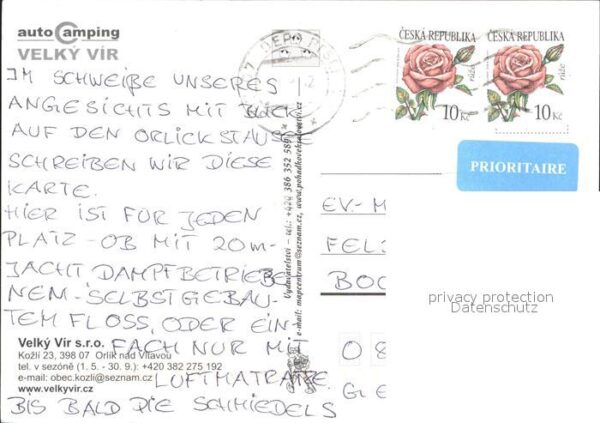 auto Camping
VELKÝ VÍR
IM SCHWEIßE UNSERES
ANGESICHTS MIT BLICK
AUF DEN ORLICKSTAUSEE
SCHREIBEN WIR DIESE
KARTE.
HIER IST FÜR JEDEN
PLATZ - OB MIT 20m-
JACHT DAMPFBETRIEBE-
NEM - SELBST GEBAU-
TEM FLOSS, ODER EIN-
FACH NUR MIT
LUFTMATRATZE.
BIS BALD DIE SCHMIEDELS
Velký Vír s.r.o.
Kožlí 23, 398 07 Orlík nad Vltavou
tel. v sezóně (1. 5. - 30. 9.): +420 382 275 192
e-mail: obec.kozli@seznam.cz
www.velkyvir.cz
Vydavatelství – tel.: +420 386 352 589
e-mail: mapcentrum@seznam.cz, www.pohadkoveknihkupectvi.cz
DEPO
ČESKÁ REPUBLIKA
růže
10 Kč
ČESKÁ REPUBLIKA
růže
10 Kč
PRIORITAIRE
EV.- M
FELS
BOC
08
GE
privacy protection
Datenschutz